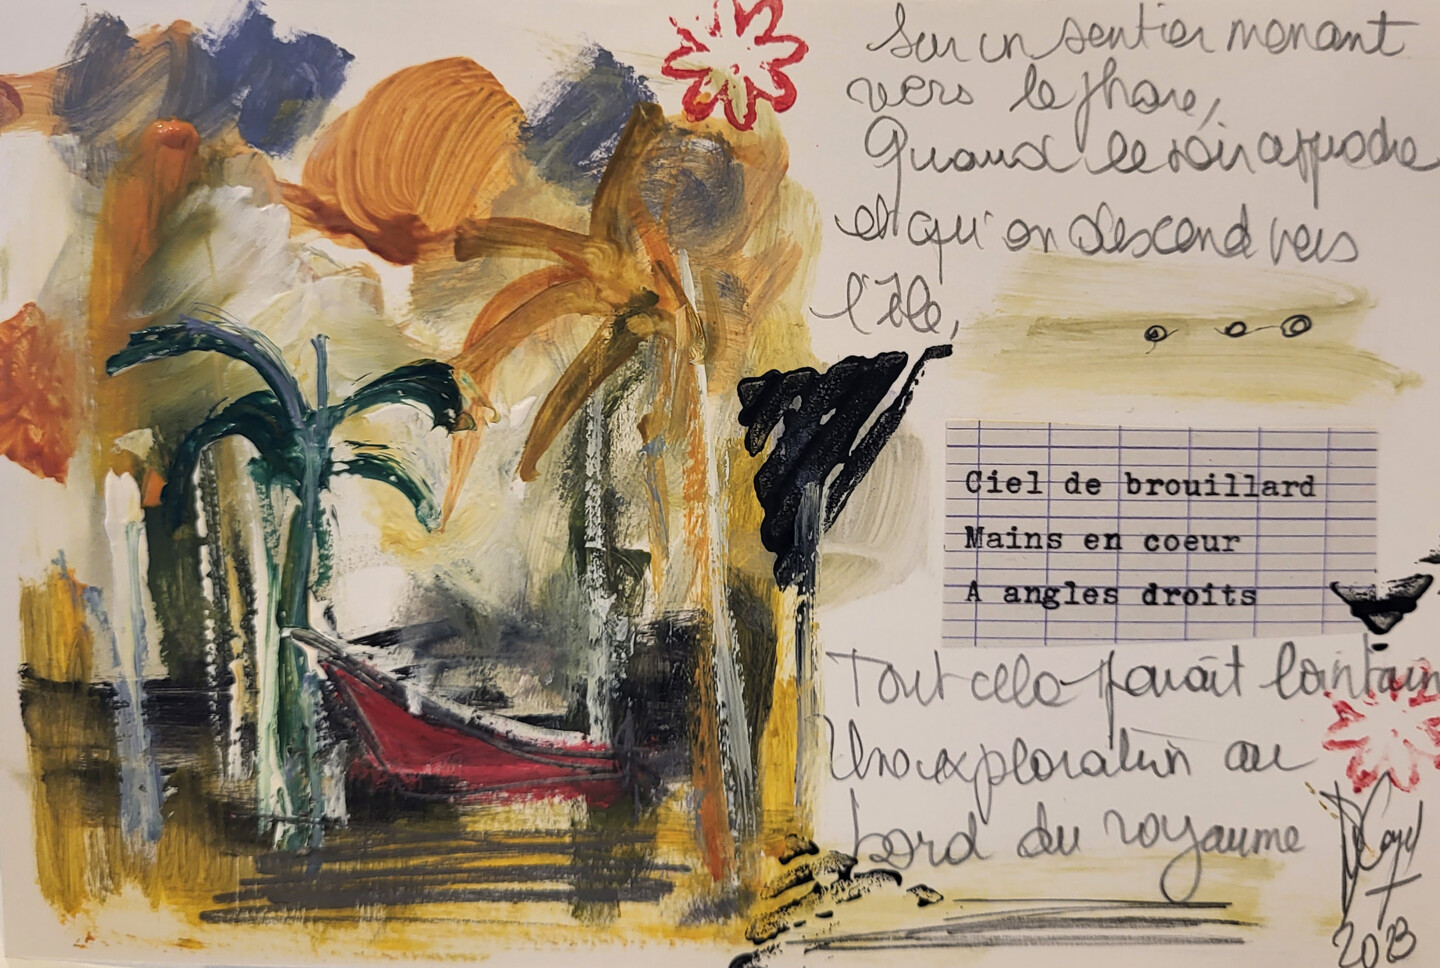 Sur un sentier menant
vers le phare,
Quand le soir approche
et qu'on descend vers
l'île,
Ciel de brouillard
Mains en coeur
A angles droits
Tout cela paraît lointain
Une exploration au
bord du royaume
2023